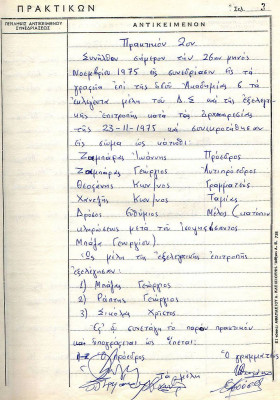 ΠΡΑΚΤΙΚΩΝ
Σελ. 3
ΠΕΡΙΛΗΨΙΣ ΑΝΤΙΚΕΙΜΕΝΟΥ
ΣΥΝΕΔΡΙΑΣΕΩΣ
ΑΝΤΙΚΕΙΜΕΝΟΝ
Πρακτικόν 2ον.
Συνήλθον σήμερον την 26ην μηνός
Νοεμβρίου 1975 εις συνεδρίασιν εις τα
γραφεία επί της οδού Ακαδημίας 6 τα
εκλεγέντα μέλη του Δ.Σ και της εξελεγκ-
τικής επιτροπής κατά τας αρχαιρεσίας
της 23-11-1975 και συνεκροτήθησαν
εις σώμα ως κάτωθι:
Ζαμπάρας Ιωάννης Πρόεδρος
Ζαμπάρας Γεώργιος Αντιπρόεδρος
Θεοχάνης Κων/νος Γραμματεύς
Κων/νος Ταμίας
Δρόσος Ευθύμιος Μέλος (κατόπιν
κληρώσεως μετά του ισοψηφίσαντος
Μπάκα Γεωργίου).
Ως μέλη της εξελεγκτικής επιτροπής
εξελέγησαν:
1) Μπάκας Γεώργιος
2) Ράπτης Γεώργιος
3) Χρίστος
Εφ' ω συνετάγη το παρόν πρακτικόν
και υπογράφεται ως έπεται:
Ο Πρόεδρος Ο γραμματεύς
Τα μέλη